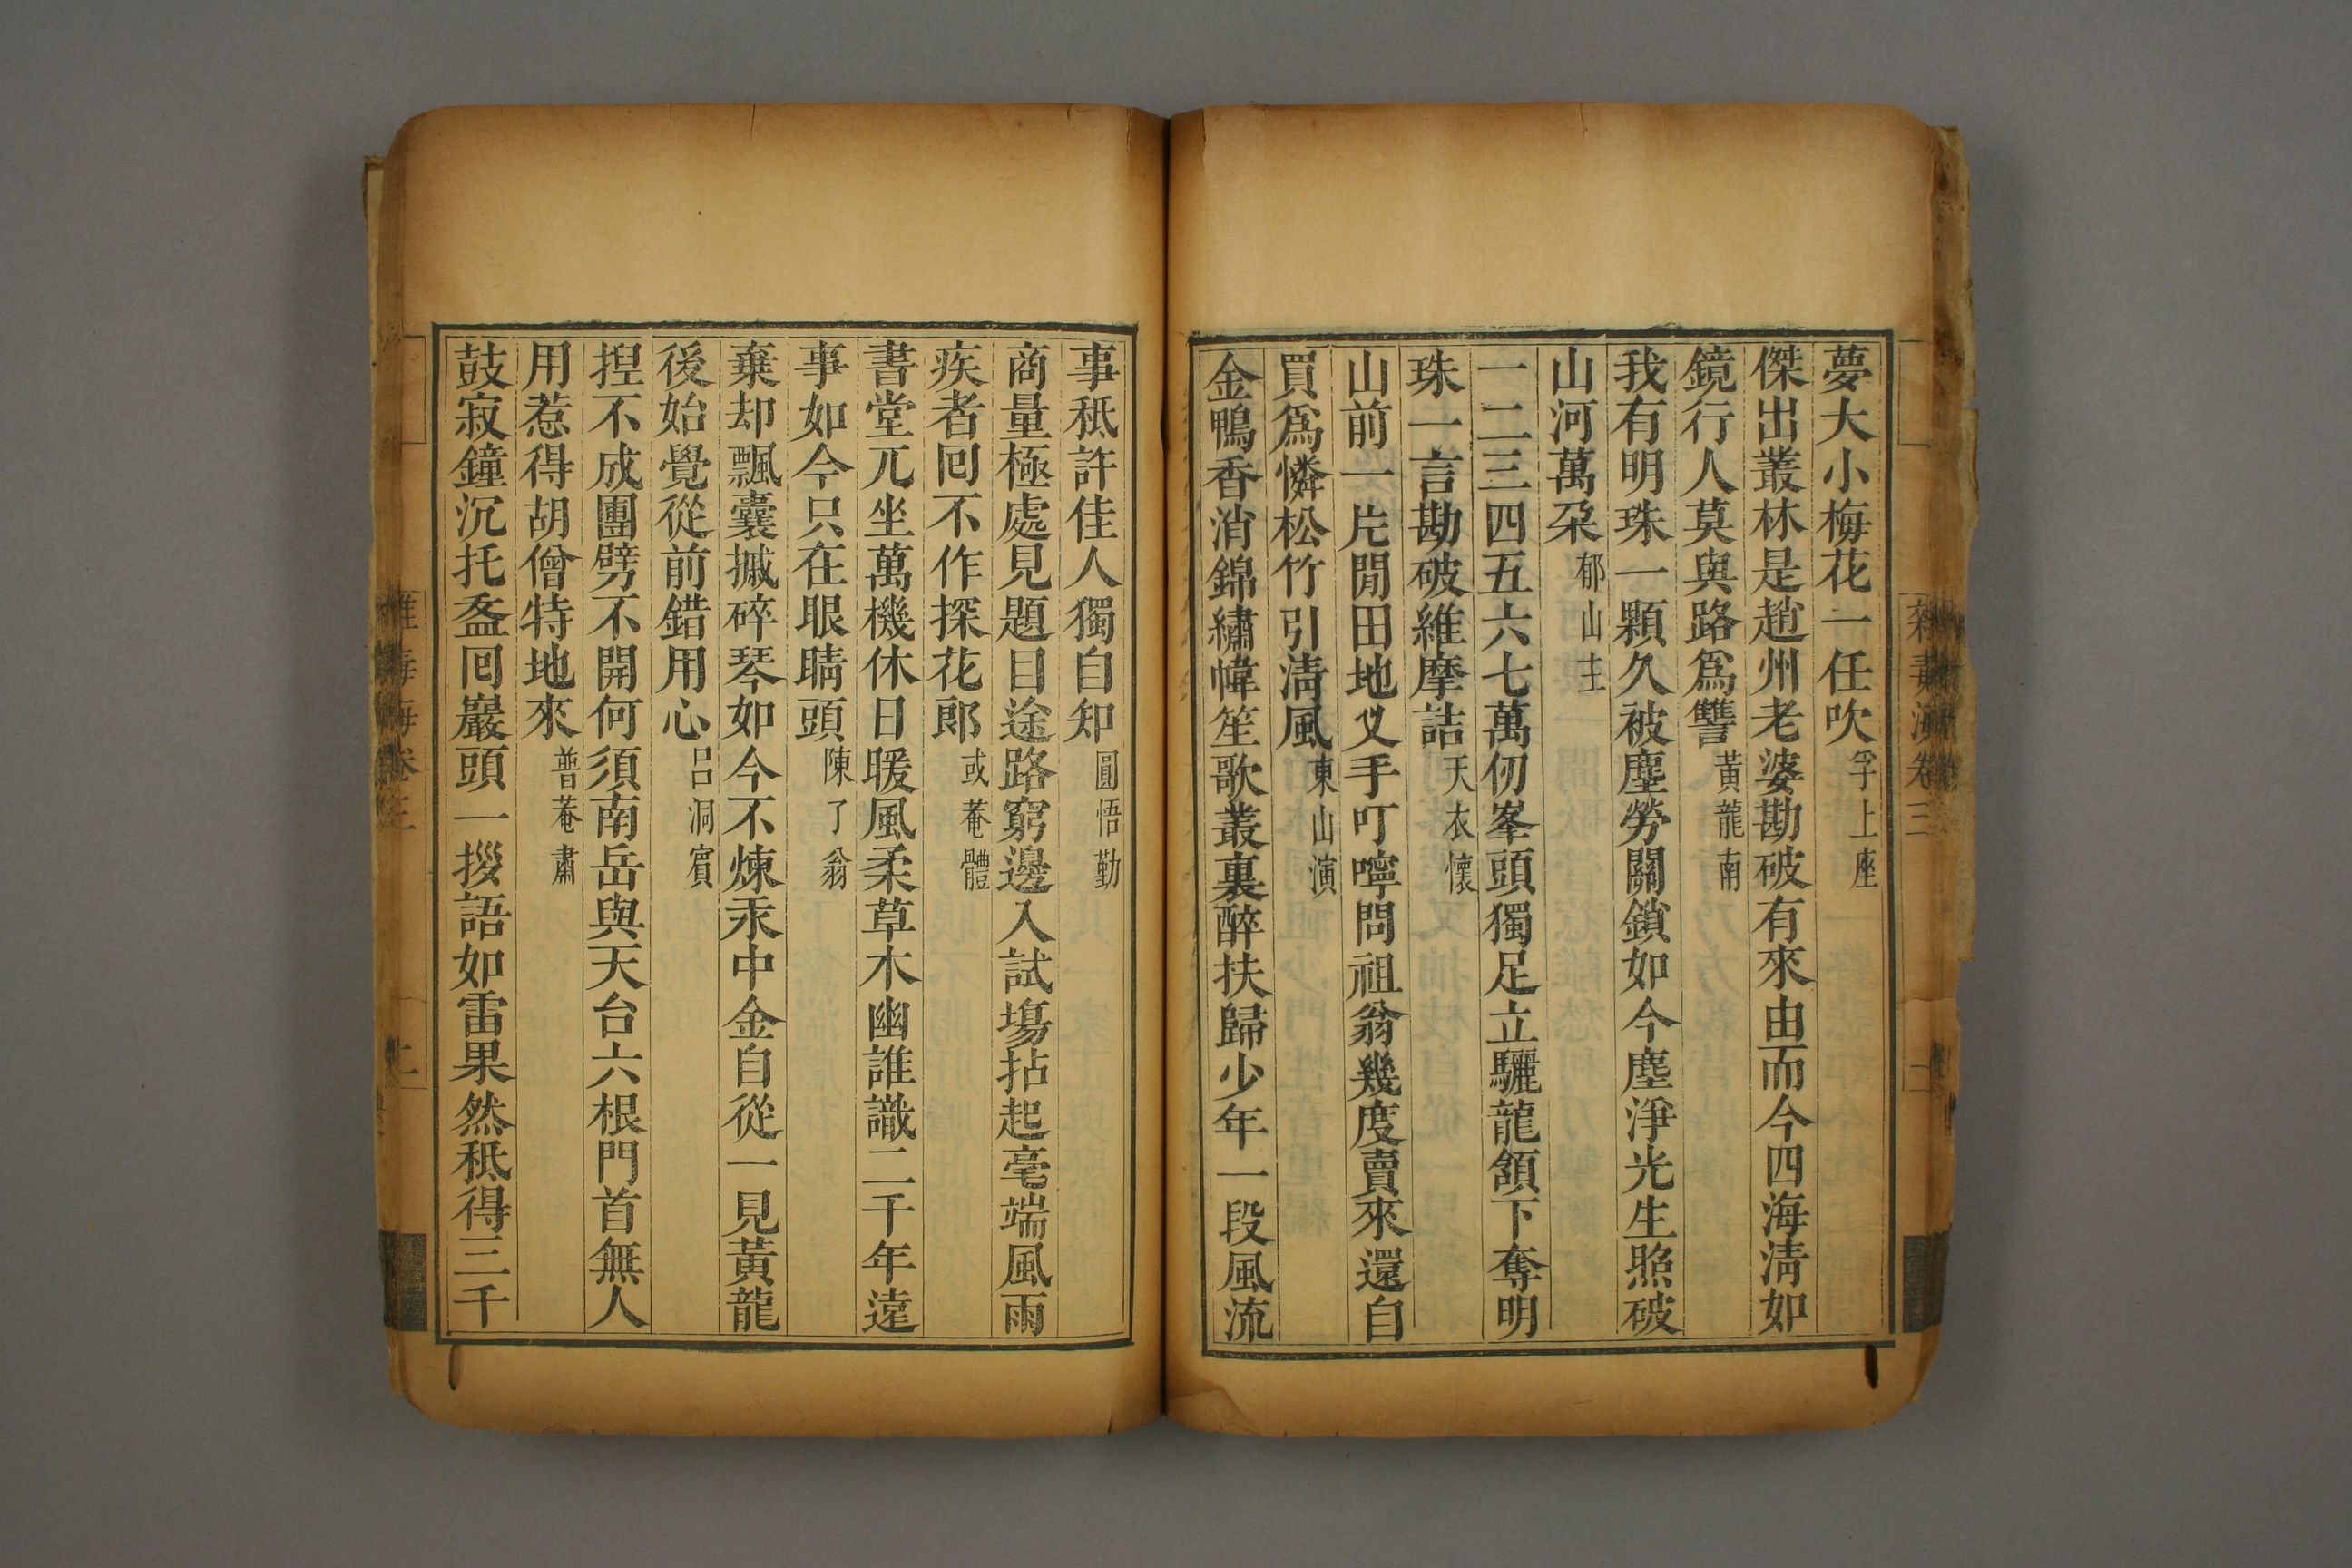 夢大小梅花一任吹孚上座
傑出叢林是趙州老婆勘破有來由而今四海淸如
鏡行人莫與路爲讐黃龍南
我有明珠一顆久被塵勞關鎖如今塵淨光生照破
山河萬朶郁山主
一二三四五六七萬仞峯頭獨足立驪龍頷下奪明
珠一言勘破維摩詰天衣懷
山前一片閒田地叉手叮嚀問祖翁幾度賣來還自
買爲憐松竹引淸風東山演
金鴨香消錦繡幃笙歌叢裏醉扶歸少年一段風流
事秪許佳人獨自知圓悟勤
商量極處見題目途路窮邊入試塲拈起毫端風雨
疾者囘不作探花郎或菴體
書堂兀坐萬機休日暖風柔草木幽誰識二千年遠
事如今只在眼睛頭陳了翁
棄却瓢囊摵碎琴如今不煉汞中金自從一見黃龍
後始覺從前錯用心呂洞賓
揑不成團劈不開何須南岳與天台六根門首無人
用惹得胡僧特地來普菴肅
鼓寂鐘沉托盋囘巖頭一拶語如雷果然秪得三千
卷三